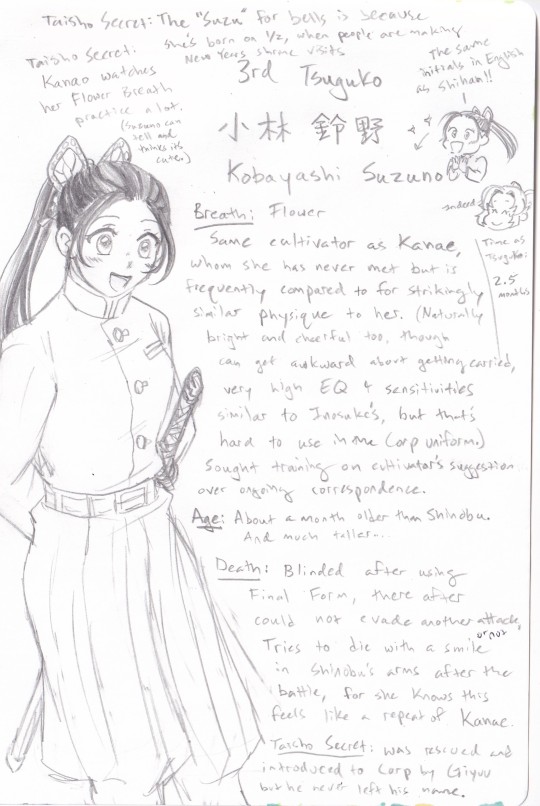 Taisho Secret: The "Suzu" for bells is because
she's born on 1/2, when people are making
New Years shrine visits
Taisho Secret:
Kanao watches
her Flower Breath
practice a lot.
(Suzuno can
tell and
thinks it's
cute.)
The same
initials in English
as Shihan!!
3rd Tsuguko
小林 鈴野
Kobayashi Suzuno
indeed
Time as
Tsuguko:
2.5
months
Breath: Flower
Same cultivator as Kanae,
whom she has never met but is
frequently compared to for strikingly
similar physique to her. (Naturally
bright and cheerful too, though
can get awkward about getting carried,
very high EQ & sensitivities
similar to Inosuke's, but that's
hard to use in the Corp uniform.)
Sought training on cultivator's suggestion
over ongoing correspondence.
Age: About a month older than Shinobu.
And much taller...
Death: Blinded after using
Final Form, there after
could not evade another attack,
or not
Tries to die with a smile
in Shinobu's arms after the
battle, for she knows this
feels like a repeat of Kanae.
Taisho Secret: was rescued and
introduced to Corp by Giyuu
but he never left his name.